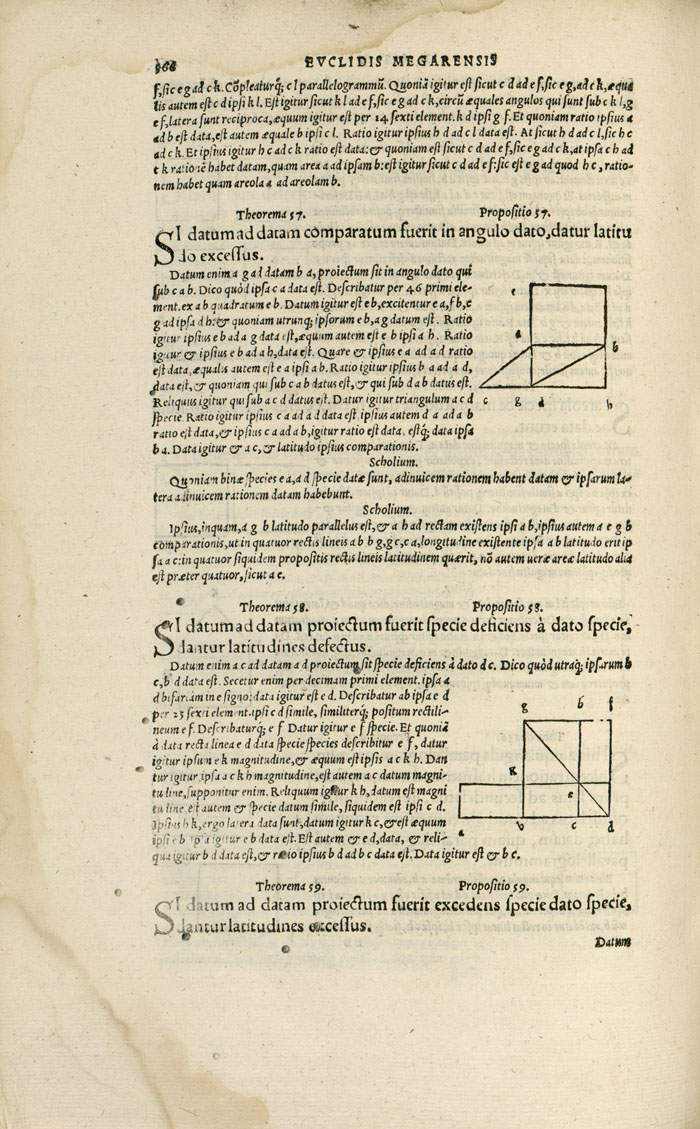 566
EVCLIDIS MEGARENSIS
f, sic e g ad c k. Cõpleaturq; c l parallelogrammũ. Quoniã igitur est sicut c d ad e f, sic e g, ad c k, æqua
lis autem est c d ipsi k l. Est igitur sicut k l ad e f, sic e g ad c k, circũ æquales angulos qui sunt sub c k l, g
e f, latera sunt reciproca, æquum igitur est per 14 sexti element. k d ipsi g f. Et quoniam ratio ipsius a
ad b est data, est autem æquale b ipsi c l. Ratio igitur ipsius h d ad c l data est. At sicut h d ad c l, sic h c
ad c k. Et ipsius igitur h c ad c k ratio est data: & quoniam est sicut c d ad e f, sic e g ad c k, at ipsa c h ad
c k rationẽ habet datam, quam area a ad ipsam b: est igitur sicut c d ad e f: sic est e g ad quod h c, ratio-
nem habet quam areola a ad areolam b.
Theorema 57. Propositio 57.
SI datum ad datam comparatum fuerit in angulo dato, datur latitu
do excessus.
Datum enim a g ad datam b a, proiectum sit in angulo dato qui
sub c a b. Dico quòd ipsa c a data est. Describatur per 46 primi ele-
ment. ex a b quadratum e b. Datum igitur est e b, excitentur e a, f b, c
g ad ipsa d h: & quoniam utrunq; ipsorum e b, a g datum est. Ratio
igitur ipsius e b ad a g data est, æquum autem est e b ipsi a h. Ratio
igitur & ipsius e b ad a h, data est. Quare & ipsius e a ad a d ratio
est data, æqualis autem est e a ipsi a b. Ratio igitur ipsius b a ad a d,
data est, & quoniam qui sub c a b datus est, & qui sub d a b datus est.
Reliquus igitur qui sub a c d datus est. Datur igitur triangulum a c d
specie. Ratio igitur ipsius c a ad a d data est. ipsius autem d a ad a b
ratio est data, & ipsius c a ad a b, igitur ratio est data. estq; data ipsa
b a. Data igitur & a c, & latitudo ipsius comparationis.
e
a
b
c
g
d
h
Scholium.
Quoniam binæ species e a, a d specie datæ sunt, adinuicem rationem habent datam & ipsarum la-
tera adinuicem rationem datam habebunt.
Scholium.
Ipsius, inquam, a g b latitudo parallelus est, & a h ad rectam existens ipsi a b, ipsius autem a e g b
comparationis, ut in quatuor rectis lineis a b b g, g c, c a, longitudine existente ipsa a b latitudo erit ip
sa a c: in quatuor siquidem propositis rectis lineis latitudinem quærit, nõ autem ueræ areæ latitudo alia
est præter quatuor, sicut a e.
Theorema 58. Propositio 58.
SI datum ad datam proiectum fuerit specie deficiens à dato specie,
dantur latitudines defectus.
Datum enim a c ad datam a d proiectum sit specie deficiens à dato d c. Dico quòd utraq; ipsarum b
c, b d data est. Secetur enim per decimam primi element. ipsa a
d bifariam in e signo: data igitur est e d. Describatur ab ipsa e d
per 25 sexti element. ipsi c d simile, similiterq; positum rectili-
neum e f. Describaturq; e f Datur igitur e f specie. Et quoniã
à data recta linea e d data specie species describitur e f, datur
igitur ipsum e k magnitudine, & æquum est ipsis a c k h. Dan
tur igitur ipsa a c k h magnitudine, est autem a c datum magni-
tudine, supponitur enim. Reliquum igitur k h, datum est magni
tudine. est autem & specie datum simile, siquidem est ipsi c d.
Ipsius h k, ergo latera data sunt, datum igitur k c, & est æquum
ipsi e b ipsa igitur e b data est. Est autem & e d, data, & reli-
qua igitur b d data est, & ratio ipsius b d ad b c data est. Data igitur est & b c.
g
h
f
K
e
a
b
c
d
Theorema 59. Propositio 59.
SI datum ad datam proiectum fuerit excedens specie dato specie,
dantur latitudines excessus.
Datum